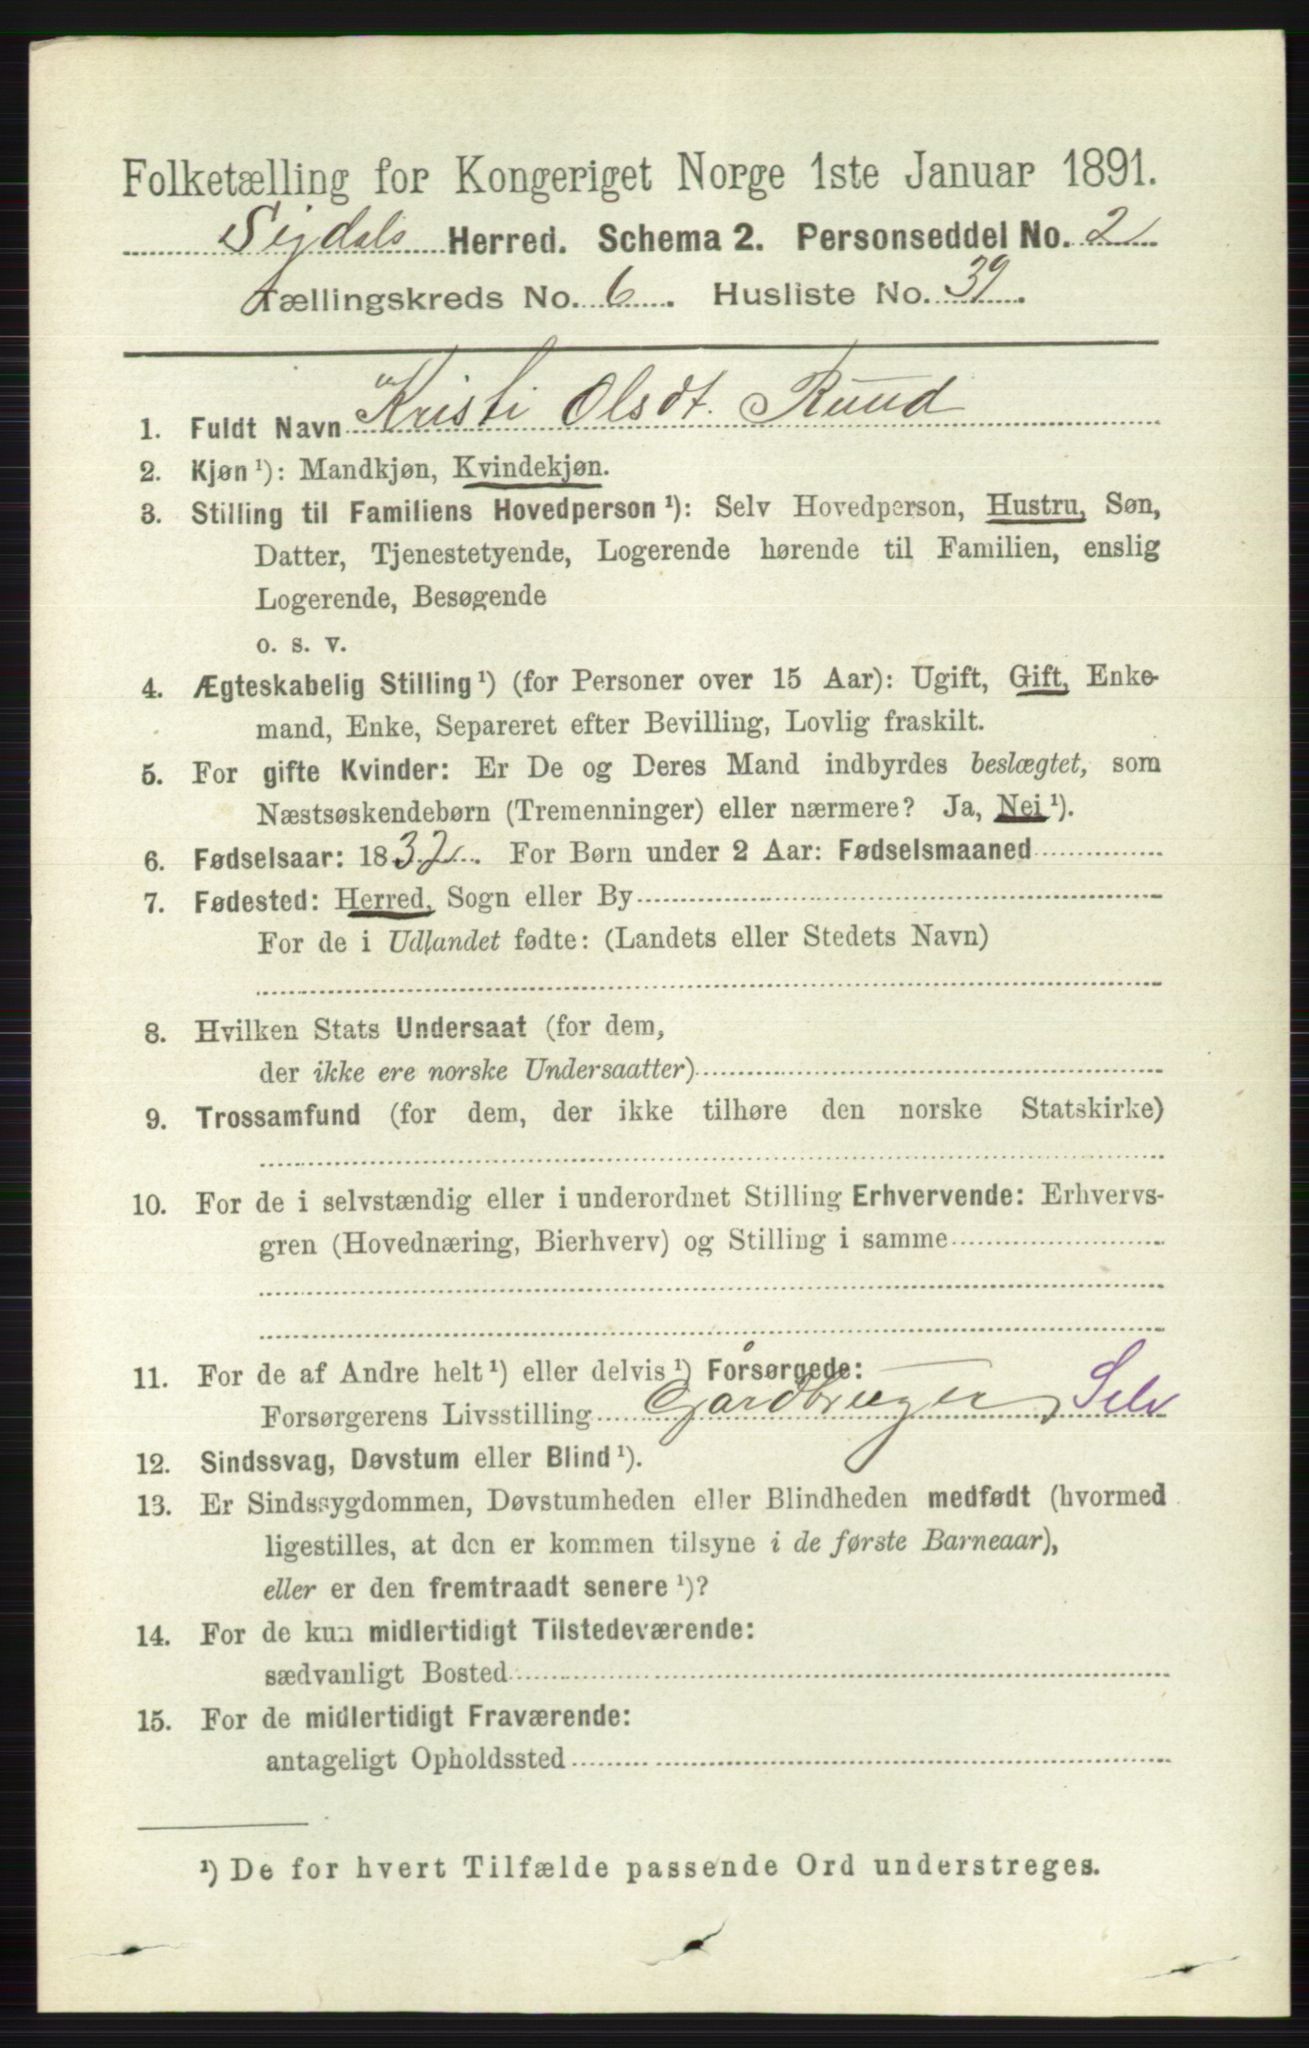 Folketælling for Kongeriget Norge 1ste Januar 1891.
Sigdals Herred. Schema 2. Personseddel No. 2
Tællingskreds No. 6. Husliste No. 39.
1. Fuldt Navn Kristi Olsdt. Ruud
2. Kjøn ¹): Mandkjøn, Kvindekjøn.
3. Stilling til Familiens Hovedperson ¹): Selv Hovedperson, Hustru, Søn,
Datter, Tjenestetyende, Logerende hørende til Familien, enslig
Logerende, Besøgende
o. s. v.
4. Ægteskabelig Stilling ¹) (for Personer over 15 Aar): Ugift, Gift, Enke-
mand, Enke, Separeret efter Bevilling, Lovlig fraskilt.
5. For gifte Kvinder: Er De og Deres Mand indbyrdes beslægtet, som
Næstsøskendebørn (Tremenninger) eller nærmere? Ja, Nei ¹).
6. Fødselsaar: 1832. For Børn under 2 Aar: Fødselsmaaned
7. Fødested: Herred, Sogn eller By
For de i Udlandet fødte: (Landets eller Stedets Navn)
8. Hvilken Stats Undersaat (for dem,
der ikke ere norske Undersaatter)
9. Trossamfund (for dem, der ikke tilhøre den norske Statskirke)
10. For de i selvstændig eller i underordnet Stilling Erhvervende: Erhvervs-
gren (Hovednæring, Bierhverv) og Stilling i samme
11. For de af Andre helt ¹) eller delvis ¹) Forsørgede:
Forsørgerens Livsstilling Gardbruger, Selv
12. Sindssvag, Døvstum eller Blind ¹).
13. Er Sindssygdommen, Døvstumheden eller Blindheden medfødt (hvormed
ligestilles, at den er kommen tilsyne i de første Barneaar),
eller er den fremtraadt senere ¹)?
14. For de kun midlertidigt Tilstedeværende:
sædvanligt Bosted
15. For de midlertidigt Fraværende:
antageligt Opholdssted
¹) De for hvert Tilfælde passende Ord understreges.